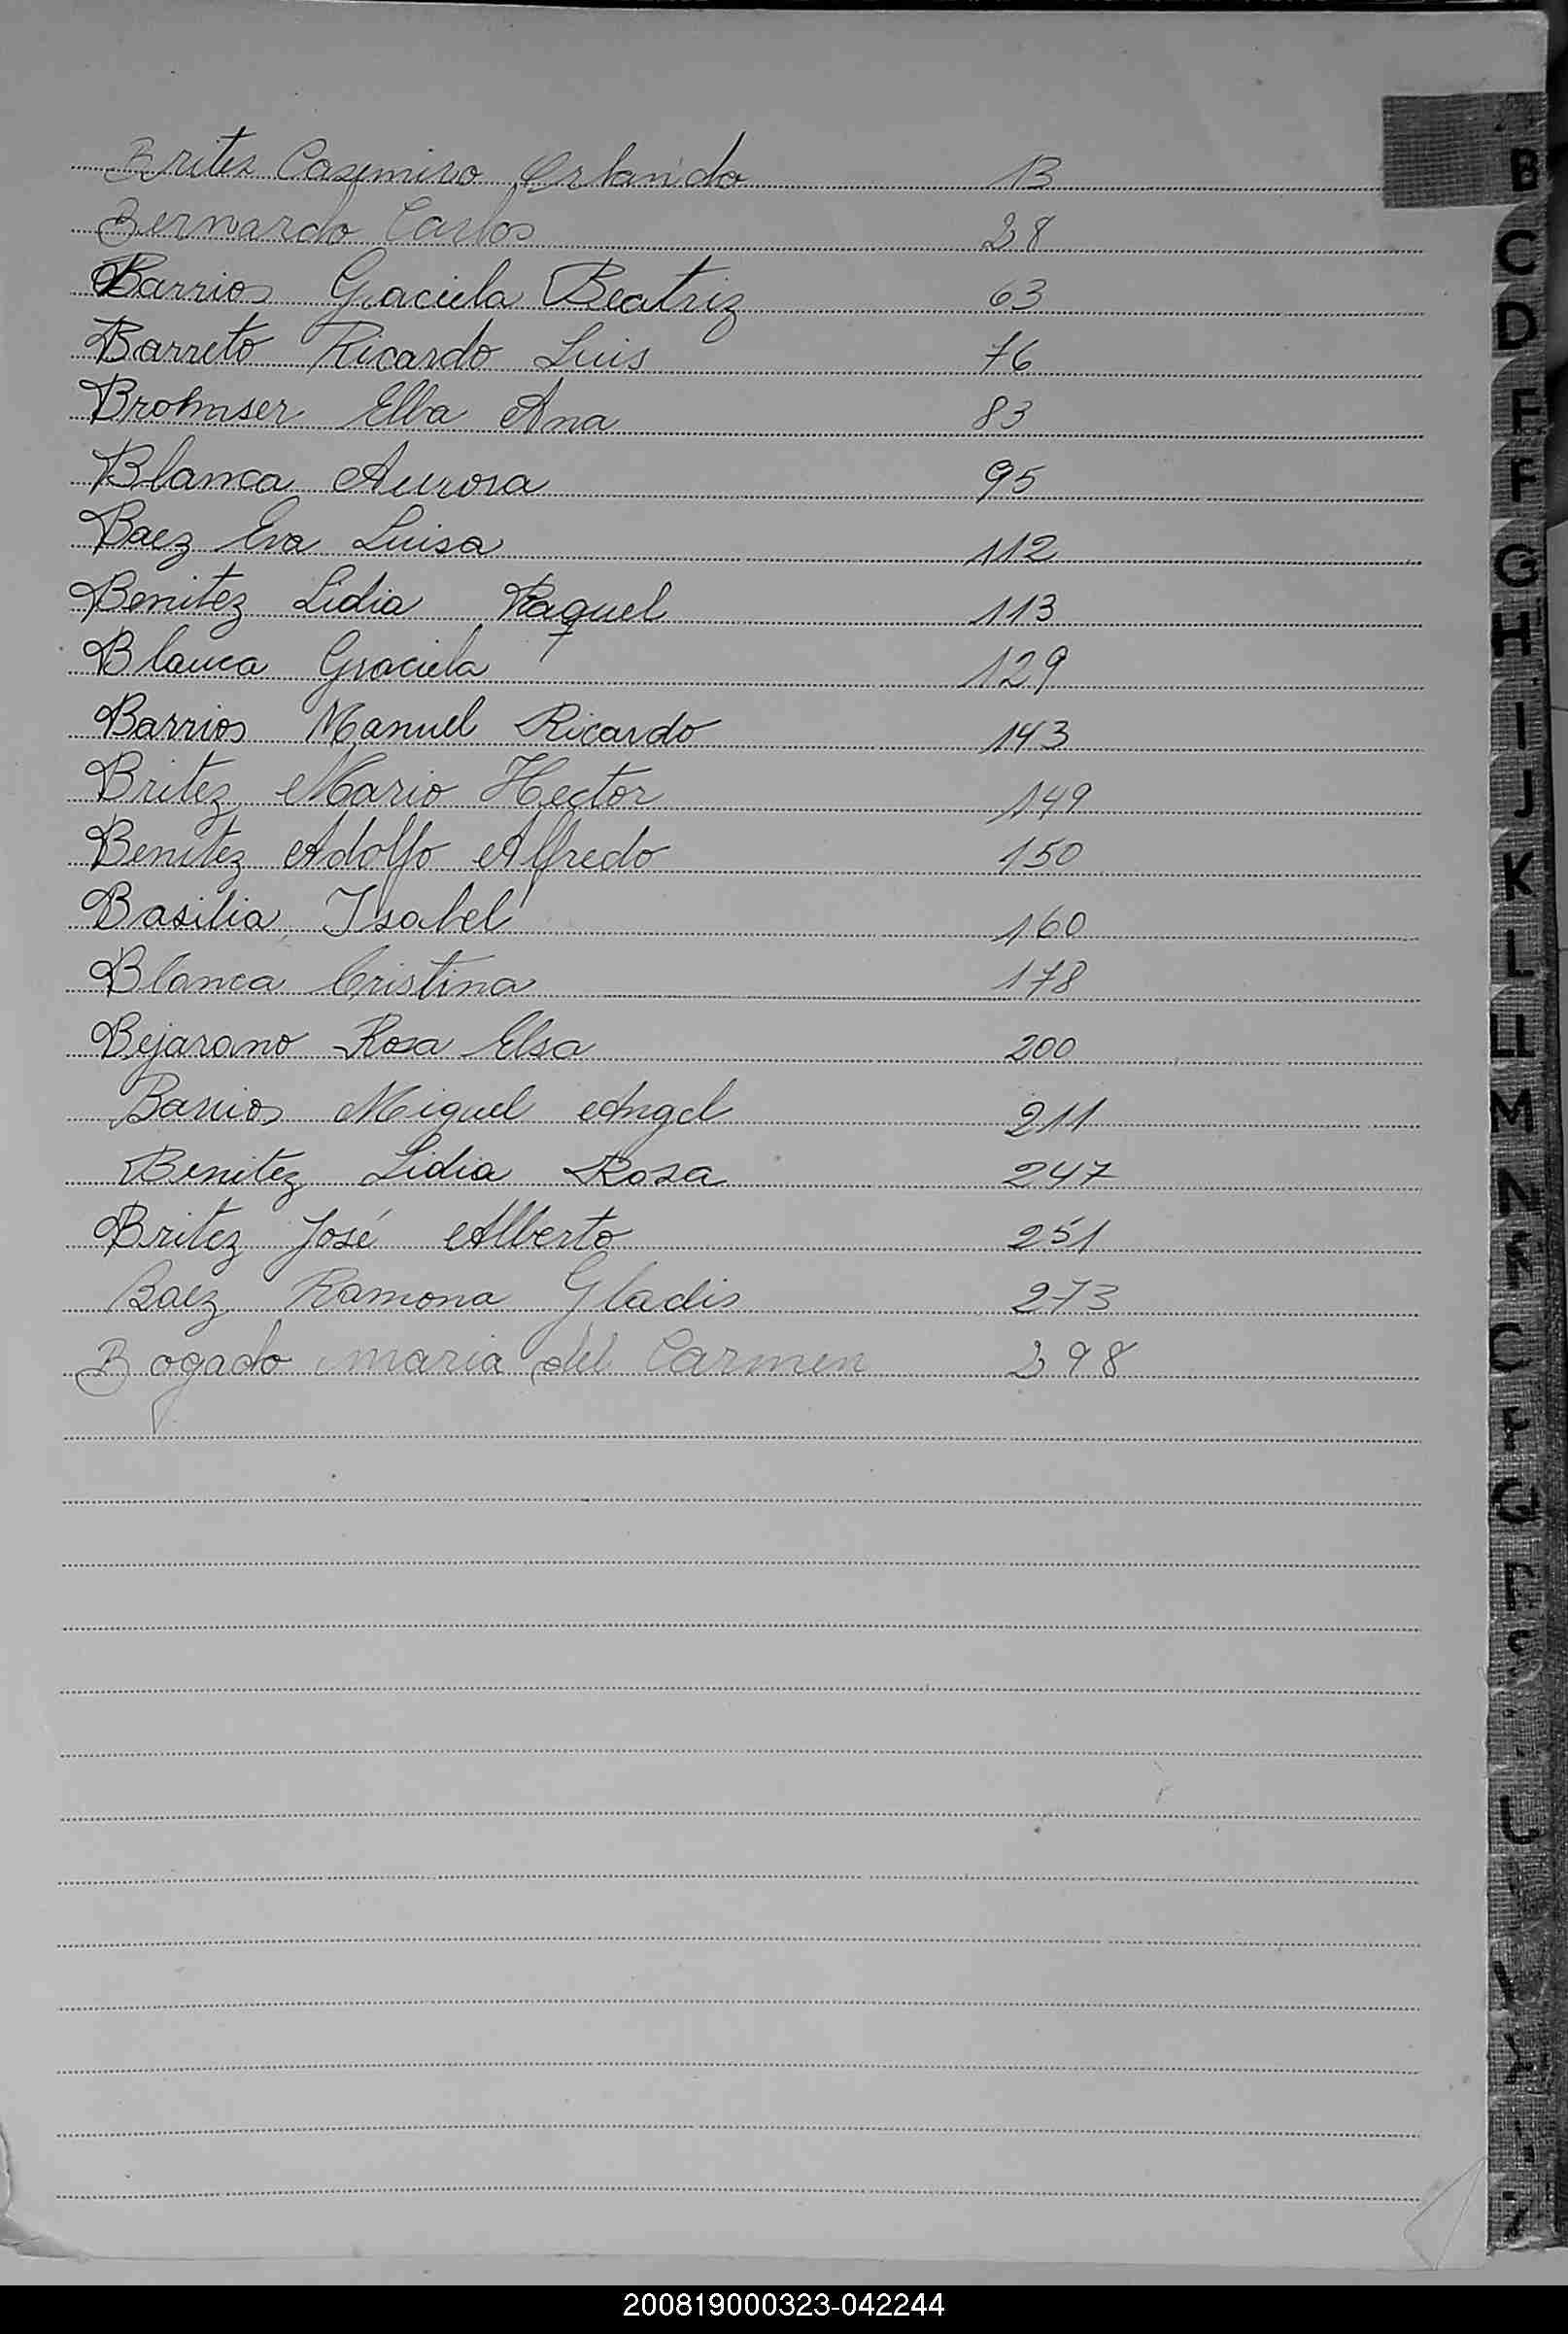 Britez Casimiro Orlando 13
Bernardo Carlos 28
Barrios Graciela Beatriz 63
Barreto Ricardo Luis 76
Elba Ana 83
Blanca Aurora 95
Baez Eva Luisa 112
Benitez Lidia Raquel 113
Blanca Graciela 129
Barrios Manuel Ricardo 143
Britez Mario Hector 149
Benitez Adolfo Alfredo 150
Basilia Isabel 160
Blanca Cristina 178
Bejarano Rosa Elsa 200
Barrios Miguel Angel 211
Benitez Lidia Rosa 247
Britez José Alberto 251
Baez Ramona Gladis 273
Bogado maria del Carmen 298
B
C
D
E
F
G
H
I
J
K
L
Ll
M
N
Ñ
O
P
Q
R
S
U
200819000323-042244